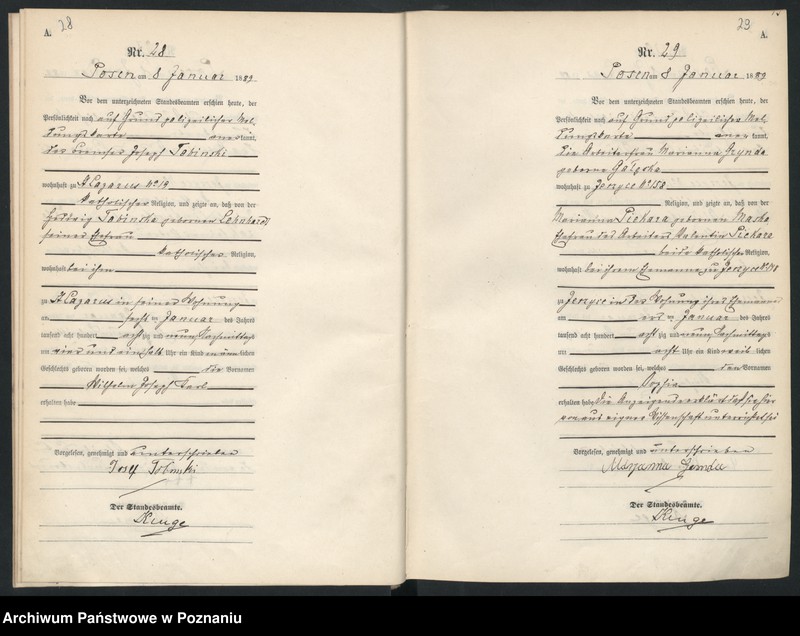 28
A.
Nr. 28
Posen am 8 Januar 1889
Vor dem unterzeichneten Standesbeamten erschien heute, der
Persönlichkeit nach auf Grund polizeilicher Mel-
dungskarte anerkannt,
Joseph Tabinski
wohnhaft zu St Lazarus No 19
katholischer Religion, und zeigte an, daß von der
Hedwig Tabinska geborenen Lehnhardt
seiner Ehefrau
katholischer Religion,
wohnhaft bei ihm
zu St Lazarus in seiner Wohnung
am sechsten Januar des Jahres
tausend acht hundert achtzig und neun Nachmittags
um vier und einhalb Uhr ein Kind männlichen
Geschlechts geboren worden sei, welches die Vornamen
Wilhelm Joseph Karl
erhalten habe
Vorgelesen, genehmigt und unterschrieben
Der Standesbeamte.
29
A.
Nr. 29
Posen am 8 Januar 1889
Vor dem unterzeichneten Standesbeamten erschien heute, der
Persönlichkeit nach auf Grund polizeilicher Mel-
dungskarte anerkannt,
die Arbeiterfrau Marianna Gzynda
geborne
wohnhaft zu Jerzyce No 158
Religion, und zeigte an, daß von der
Marianna Piechara geborenen
Ehefrau des Arbeiters Valentin Piechara
beide katholischer Religion,
wohnhaft bei ihrem Ehemanne zu Jerzyce
zu Jerzyce in der Wohnung ihres Ehemannes
am ersten Januar des Jahres
tausend acht hundert achtzig und neun Nachmittags
um acht Uhr ein Kind weiblichen
Geschlechts geboren worden sei, welches den Vornamen
Sophia
erhalten habe. Die Anzeigende erklärt daß sie hier
von aus eigner Wissenschaft unterrichtet sei
Vorgelesen, genehmigt und unterschrieben
Der Standesbeamte.
Archiwum Państwowe w Poznaniu